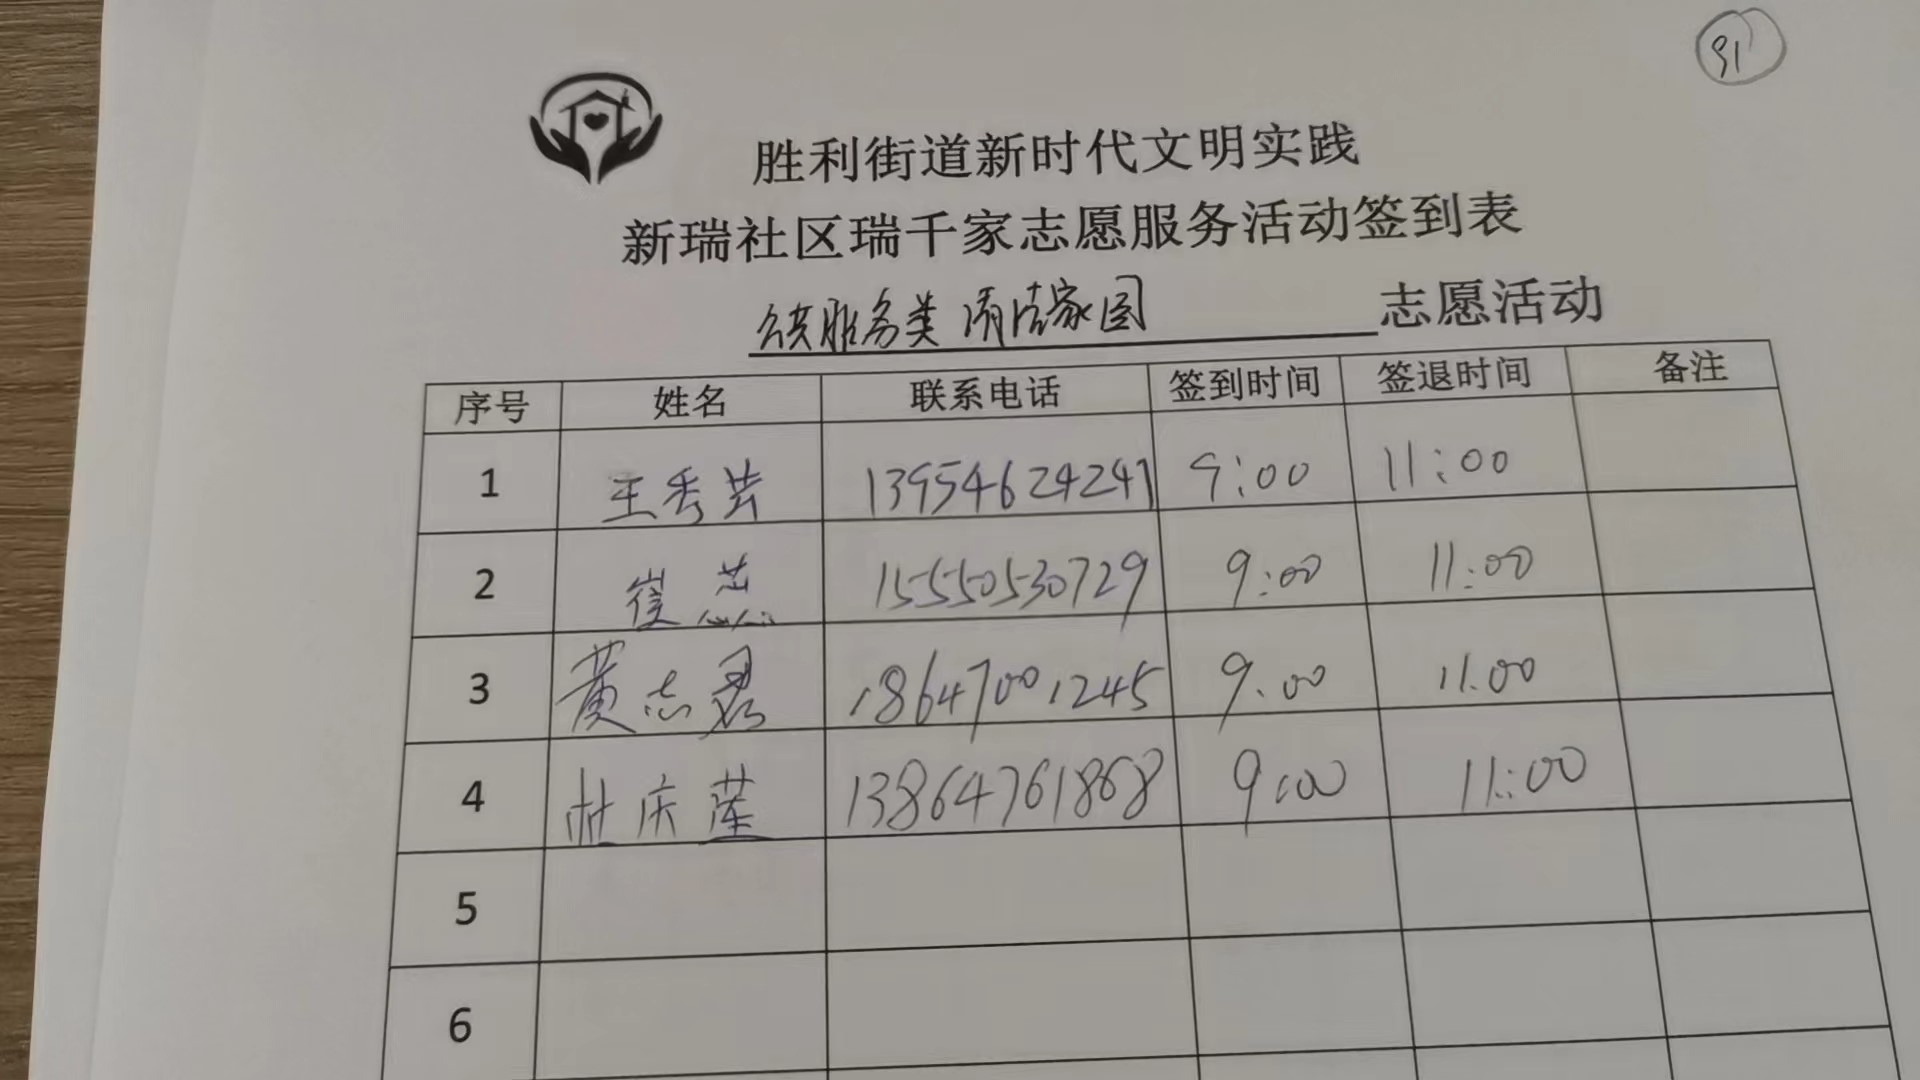 91
胜利街道新时代文明实践
新瑞社区瑞千家志愿服务活动签到表
公共服务类 清洁家园 志愿活动
序号 姓名 联系电话 签到时间 签退时间 备注
1 王秀芸 13954624241 9:00 11:00
2 崔蕊 15550530729 9:00 11:00
3 黄志君 18647001245 9.00 11.00
4 杜庆莲 13864761868 9:00 11:00
5
6